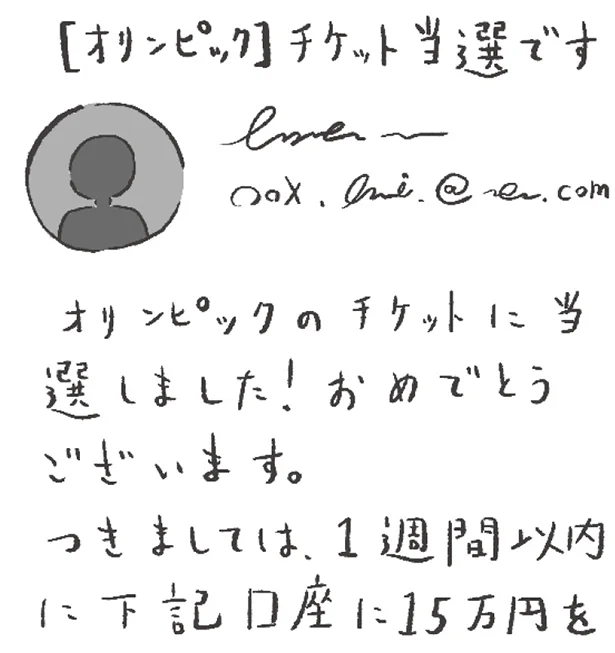 [オリンピック]チケット当選です
.com
オリンピックのチケットに当
選しました!おめでとう
ございます。
つきましては、1週間以内
に下記口座に15万円を